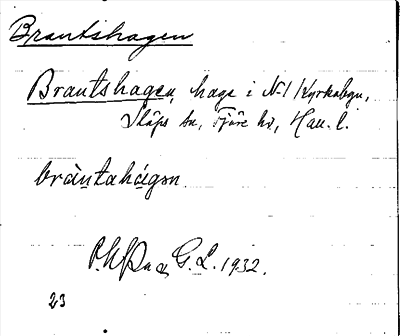 Brantshagen
Brantshagen, hage i N:1 Kyrkobyn,
Släps sn, Fjäre hd, Hall. l.
bràntahágən
G. L. 1932.
23